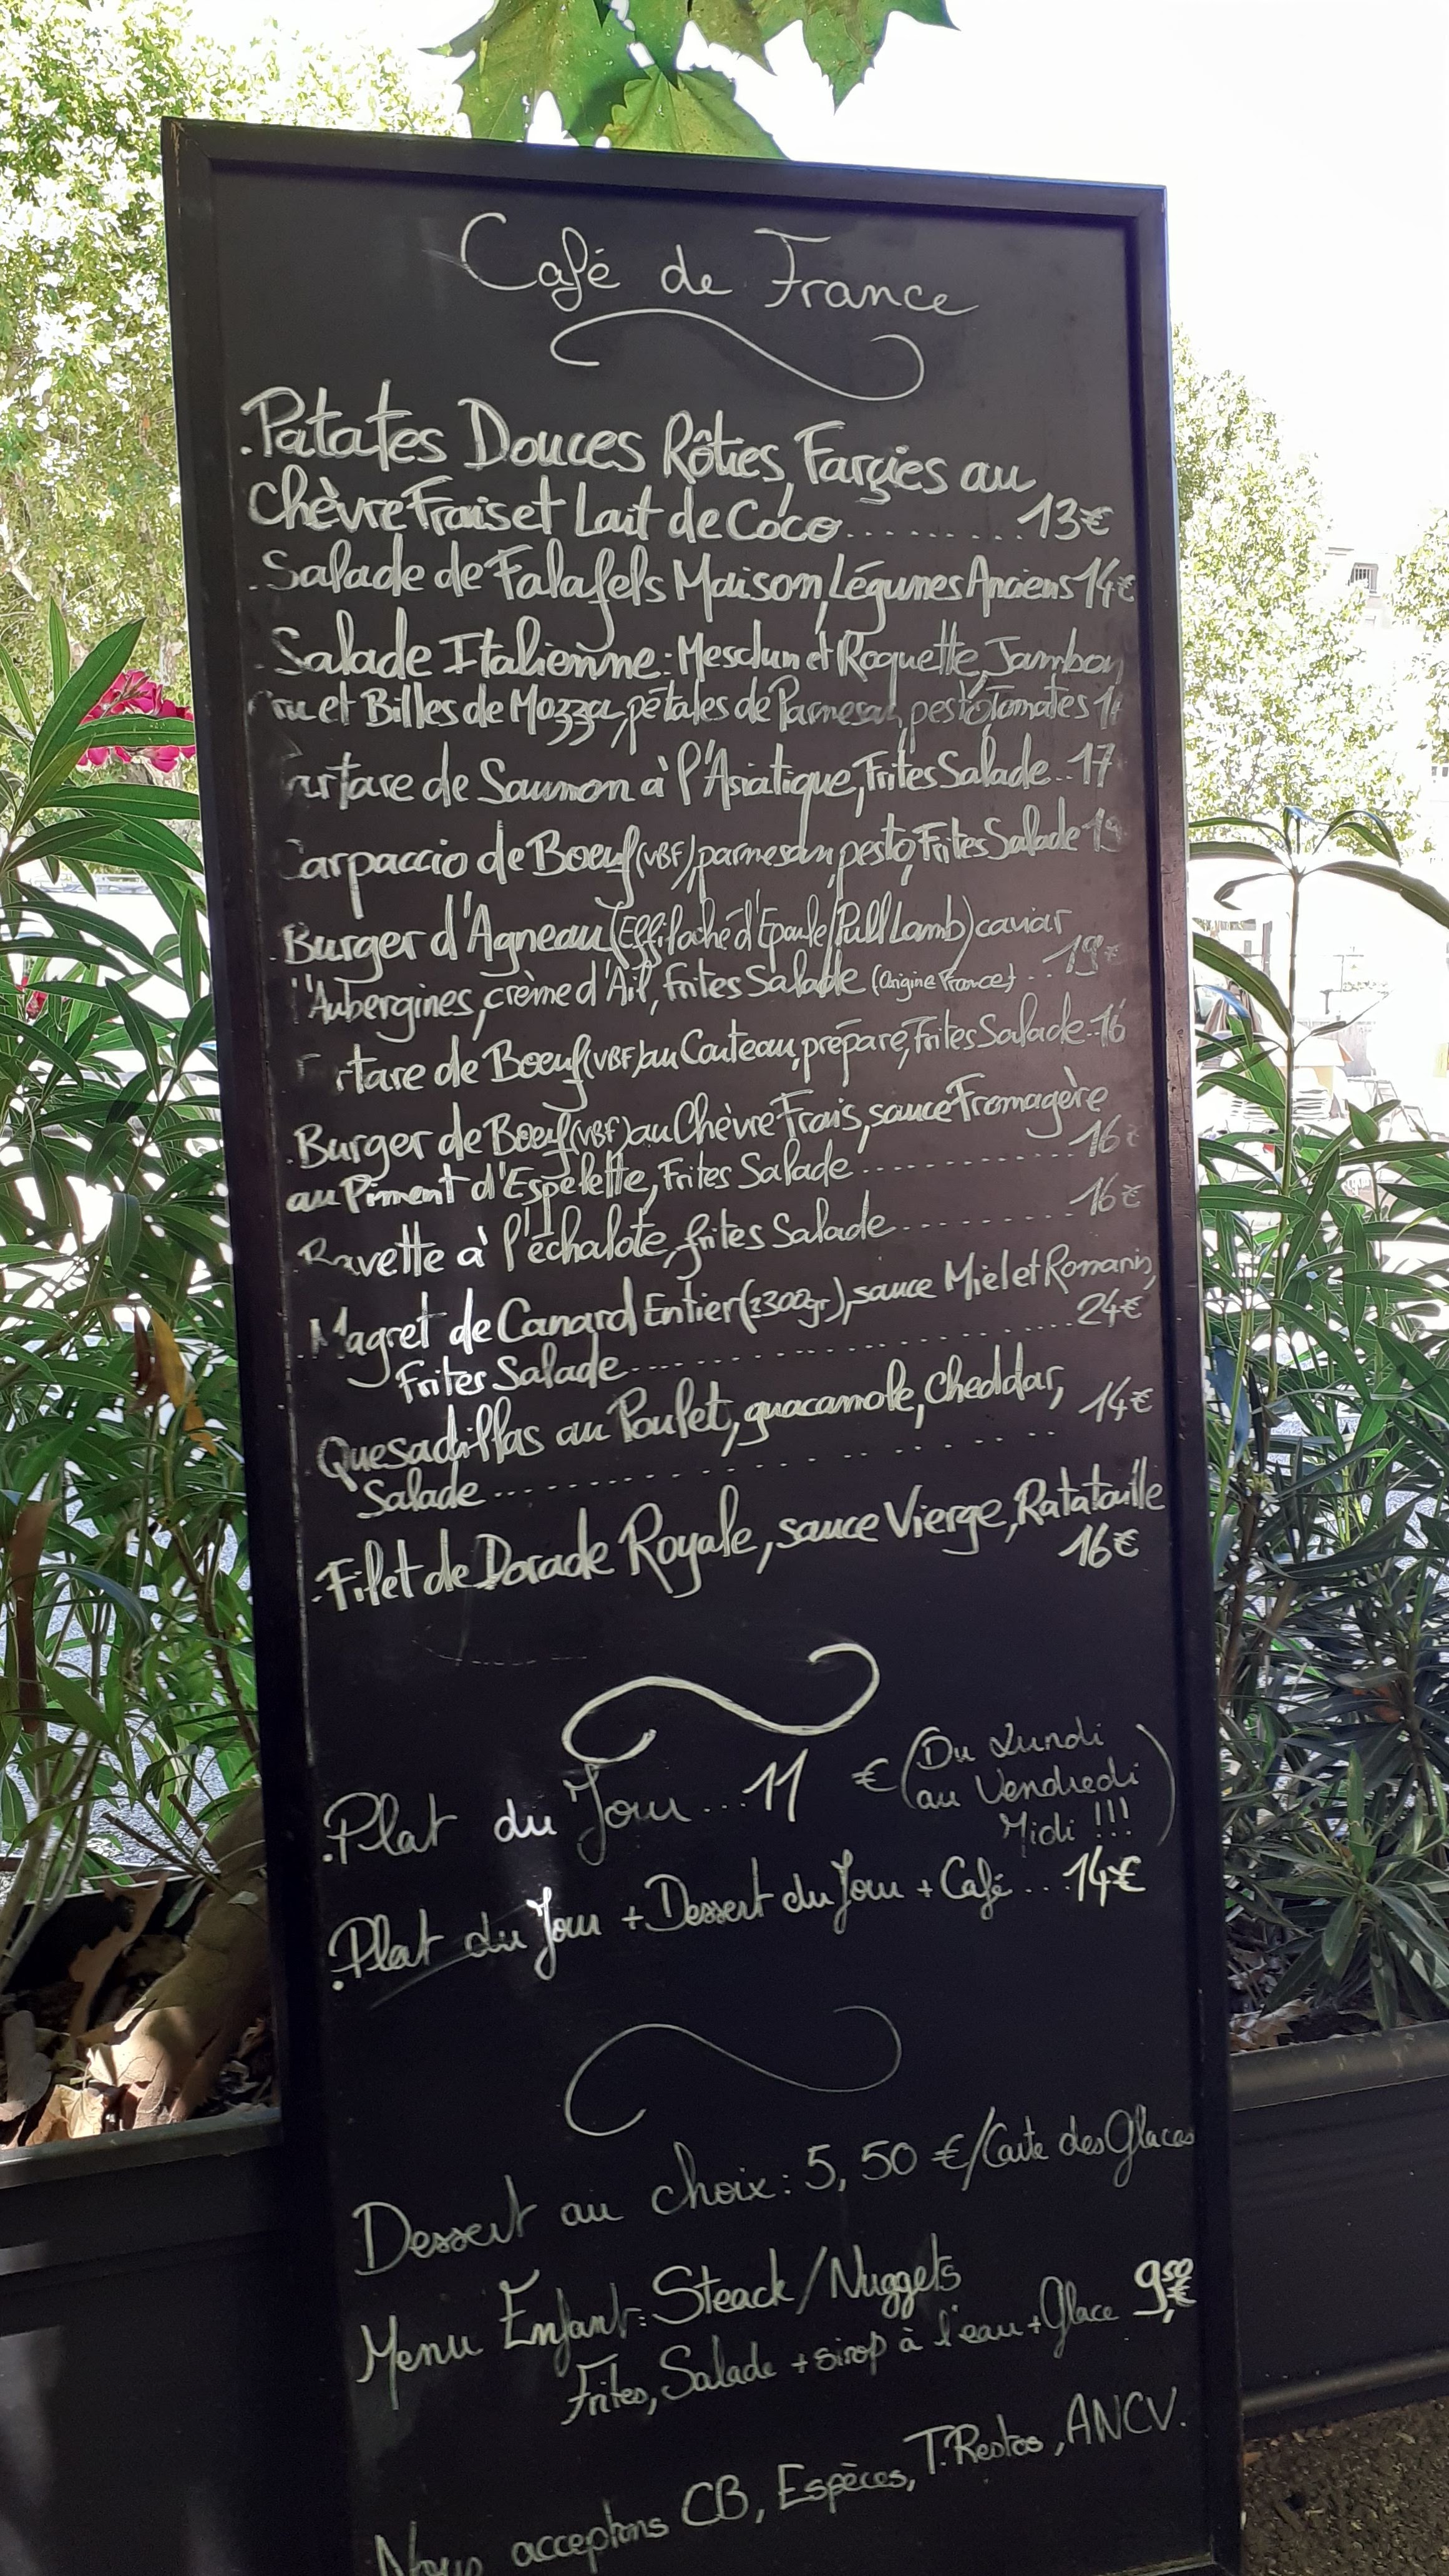 Café de France
.Patates Douces Rôties, Farçies au
Chèvre Frais et Lait de Coco.........13€
.Salade de Falafels Maison, Légumes Anciens 14€
.Salade Italienne: Mesclun et Roquette, Jambon
Cru et Billes de Mozza, pétales de Parmesan, pesto, Tomates
Tartare de Saumon à l'Asiatique, Frites Salade..17
Carpaccio de Boeuf (VBF), parmesan, pesto, Frites Salade 19
.Burger d'Agneau (Effiloché d'Epaule/Pull Lamb) caviar
d'Aubergines, crème d'Ail, Frites Salade (Origine France)...19€
Tartare de Boeuf (VBF) au Couteau, préparé, Frites Salade..16
.Burger de Boeuf (VBF) au Chèvre Frais, sauce Fromagère
au Piment d'Espelette, Frites Salade............16€
.Bavette à l'échalote, frites Salade............16€
.Magret de Canard Entier (±300gr), sauce Miel et Romarin,
Frites Salade............24€
Quesadillas au Poulet, guacamole, cheddar,
Salade............14€
.Filet de Dorade Royale, sauce Vierge, Ratatouille
16€
.Plat du Jour...11 € (Du Lundi
au Vendredi
Midi !!!)
.Plat du Jour + Dessert du Jour + Café...14€
Dessert au choix: 5,50 €/Carte des Glaces
Menu Enfant: Steack/Nuggets
Frites, Salade + sirop à l'eau + Glace 9,50€
Nous acceptons CB, Espèces, T.Restos, ANCV.